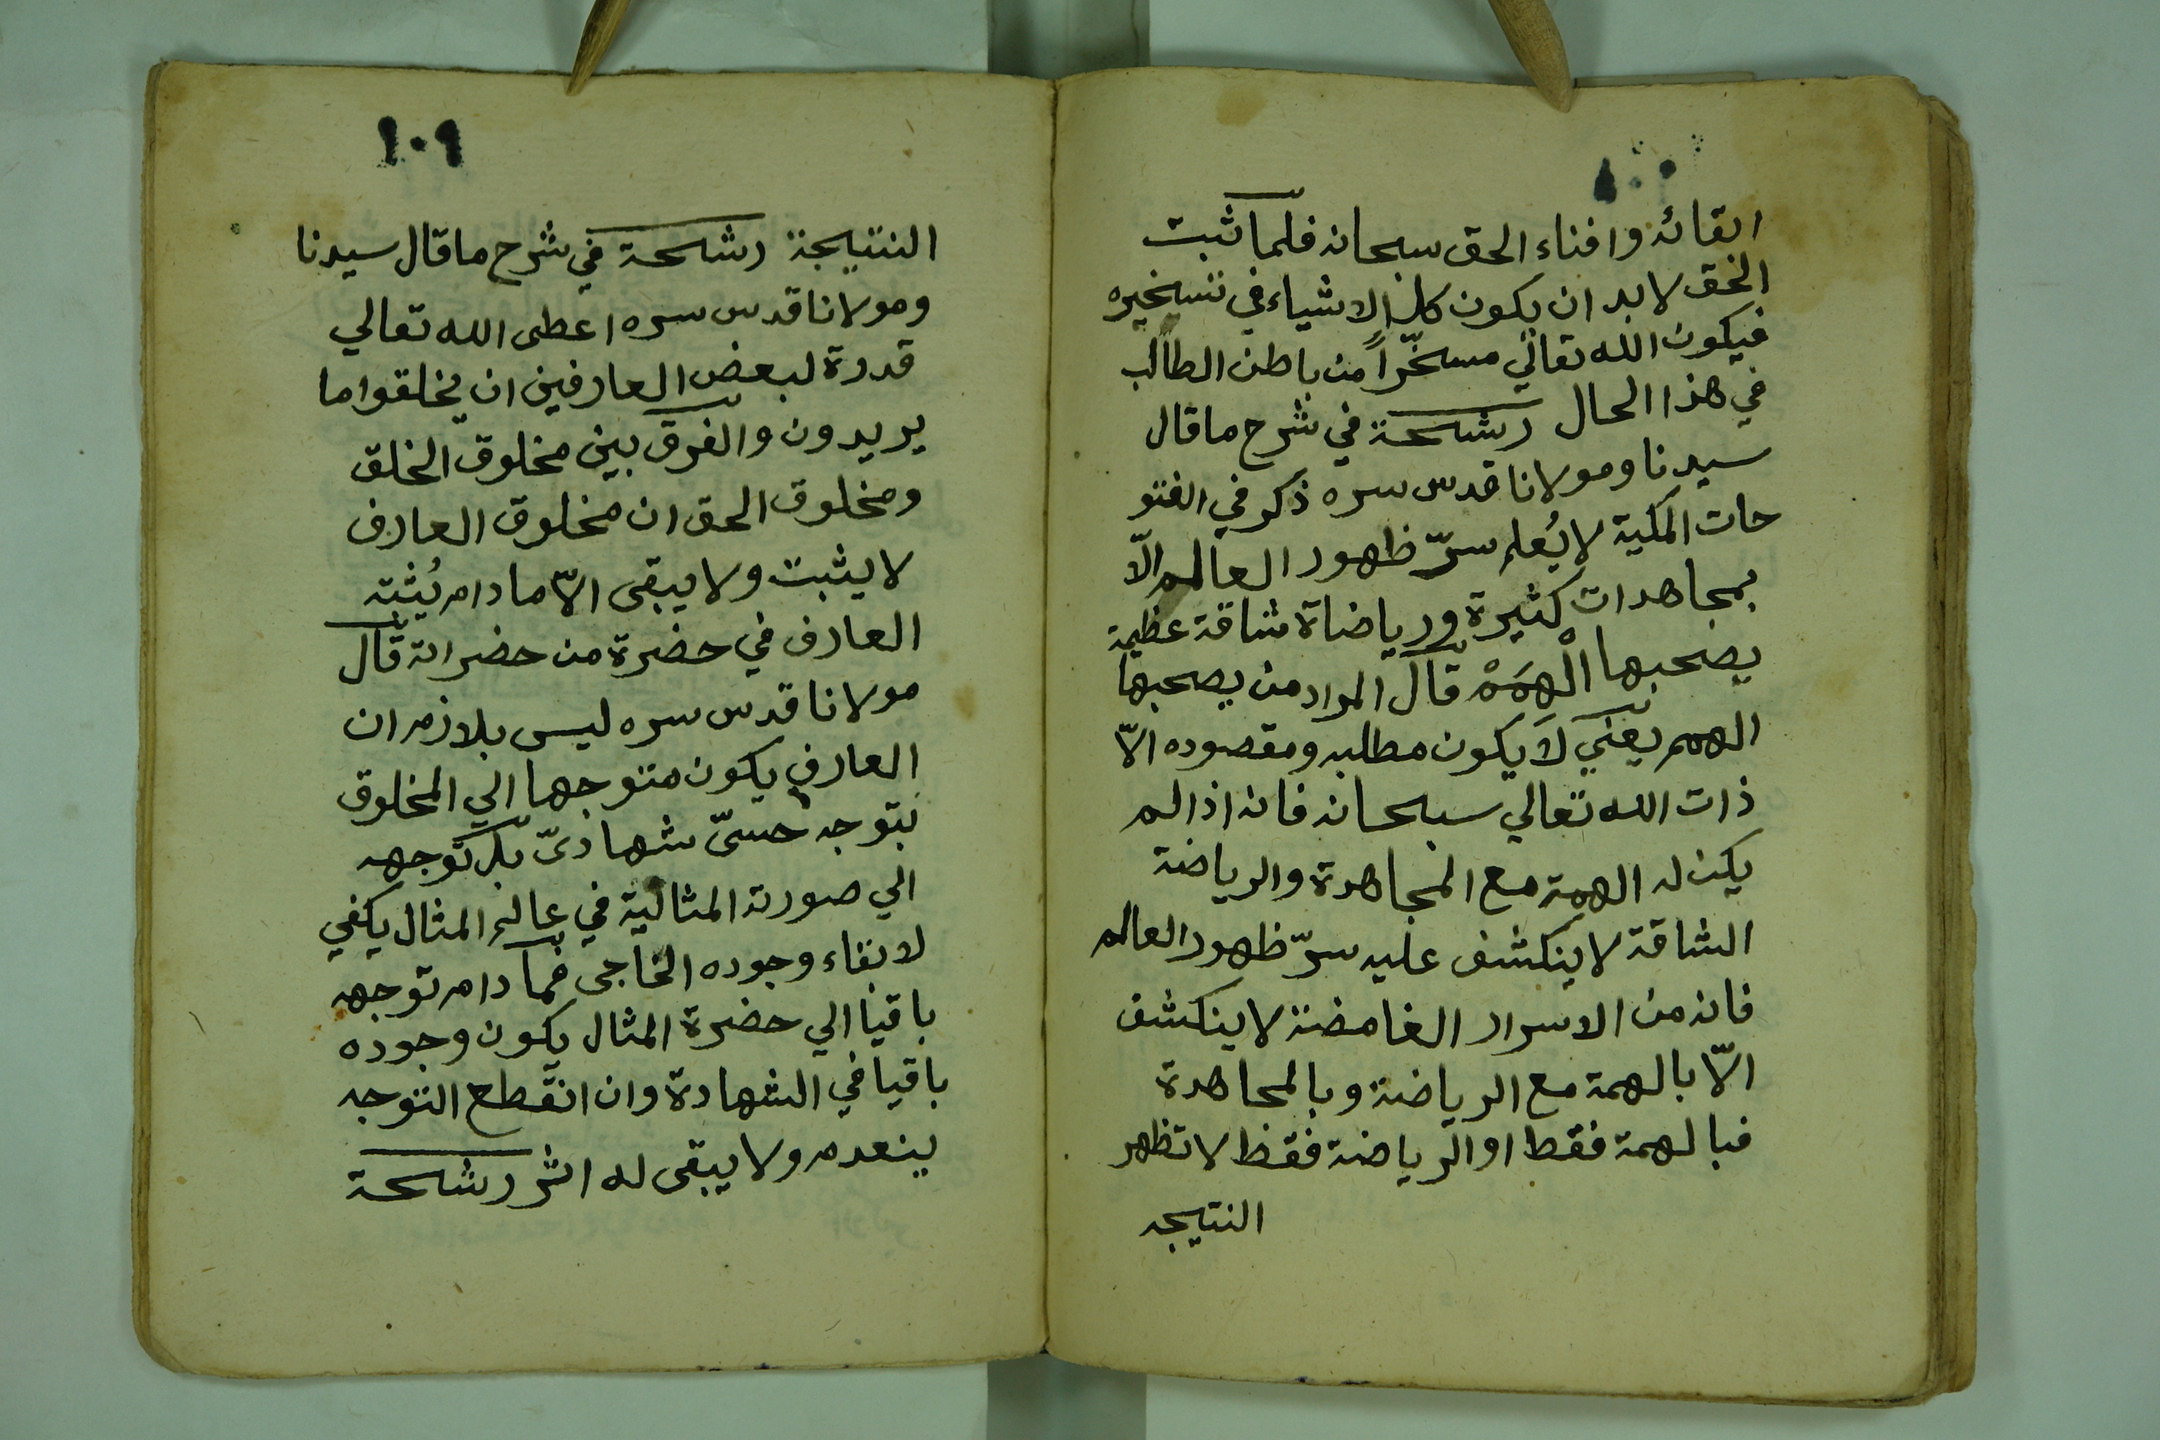 ابقائه وافناء الحق سبحانه فلما ثبت
الحق لا بد ان يكون كل الاشياء في تسخيره
فيكون الله تعالي مسخّراً من باطن الطالب
في هذا الحال رشحة في شرح ما قال
سيدنا ومولانا قدس سره ذكر في الفتو
حات المكية لا يُعلم سرّ ظهور العالم الّا
بمجاهدات كثيرة ورياضاة شاقة عظيمة
يصحبها الْهمَمْ قال المراد من يصحبها
الهمم يعني لا يكون مطلبه ومقصوده الّا
ذات الله تعالي سبحانه فانه اذا لم
يكن له الهمة مع المجاهدة والرياضة
الشاقة لا ينكشف عليه سرّ ظهور العالم
فانه من الاسرار الغامضة لا ينكشف
الّا بالهمة مع الرياضة وبالمجاهدة
فبالهمة فقط او الرياضة فقط لا تظهر
النتيجه
١٠٩
النتيجة رشحة في شرح ما قال سيدنا
ومولانا قدس سره اعطى الله تعالي
قدرة لبعض العارفين ان يخلقوا ما
يريدون والفرق بين مخلوق الخلق
ومخلوق الحق ان مخلوق العارف
لا يثبت ولا يبقى الّا ما دام يُثبته
العارف في حضرة من حضراته قال
مولانا قدس سره ليس بلازم ان
العارف يكون متوجها الي المخلوق
بتوجه حسّى شهادىّ بل توجهه
الي صورته المثالية في عالم المثال يكفي
لابقاء وجوده الخاجى فما دام توجهه
باقيا الي حضرة المثال يكون وجوده
باقيا في الشهادة وان انقطع التوجه
ينعدم ولا يبقى له اثر رشحة